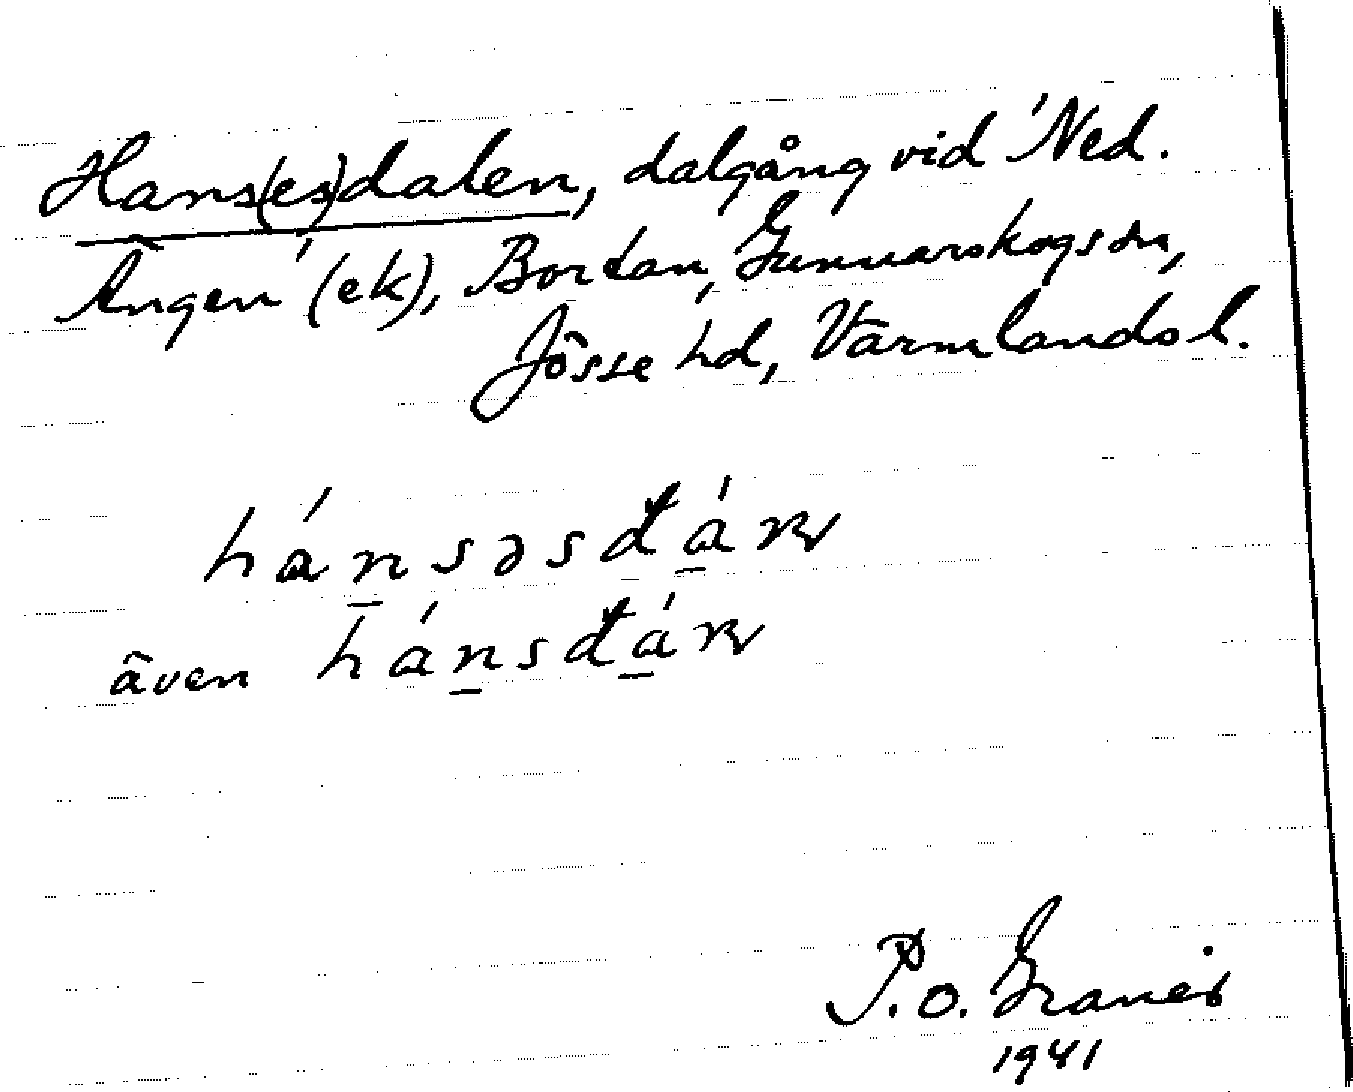 Hans(es)dalen, dalgång vid 'Ned.
Ängen' (ek), Bortan, Gunnarskogs sn,
Jösse hd, Värmlands l.
hánsəsđáṛ
även hánsđáṛ
P.O. Granér
1941